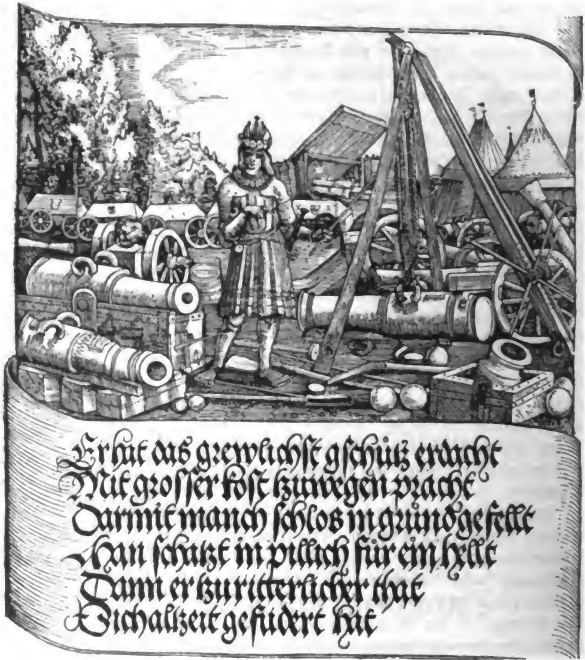 Er hat das grewlichst gschütz erdacht
Mit grosser kost tzuwegen pracht
Darmit manch schlos in grund gefellt
Man schatzt in pillich für ein hellt
Dann er tzu ritterlicher that
Sich altzeit gefudert hat